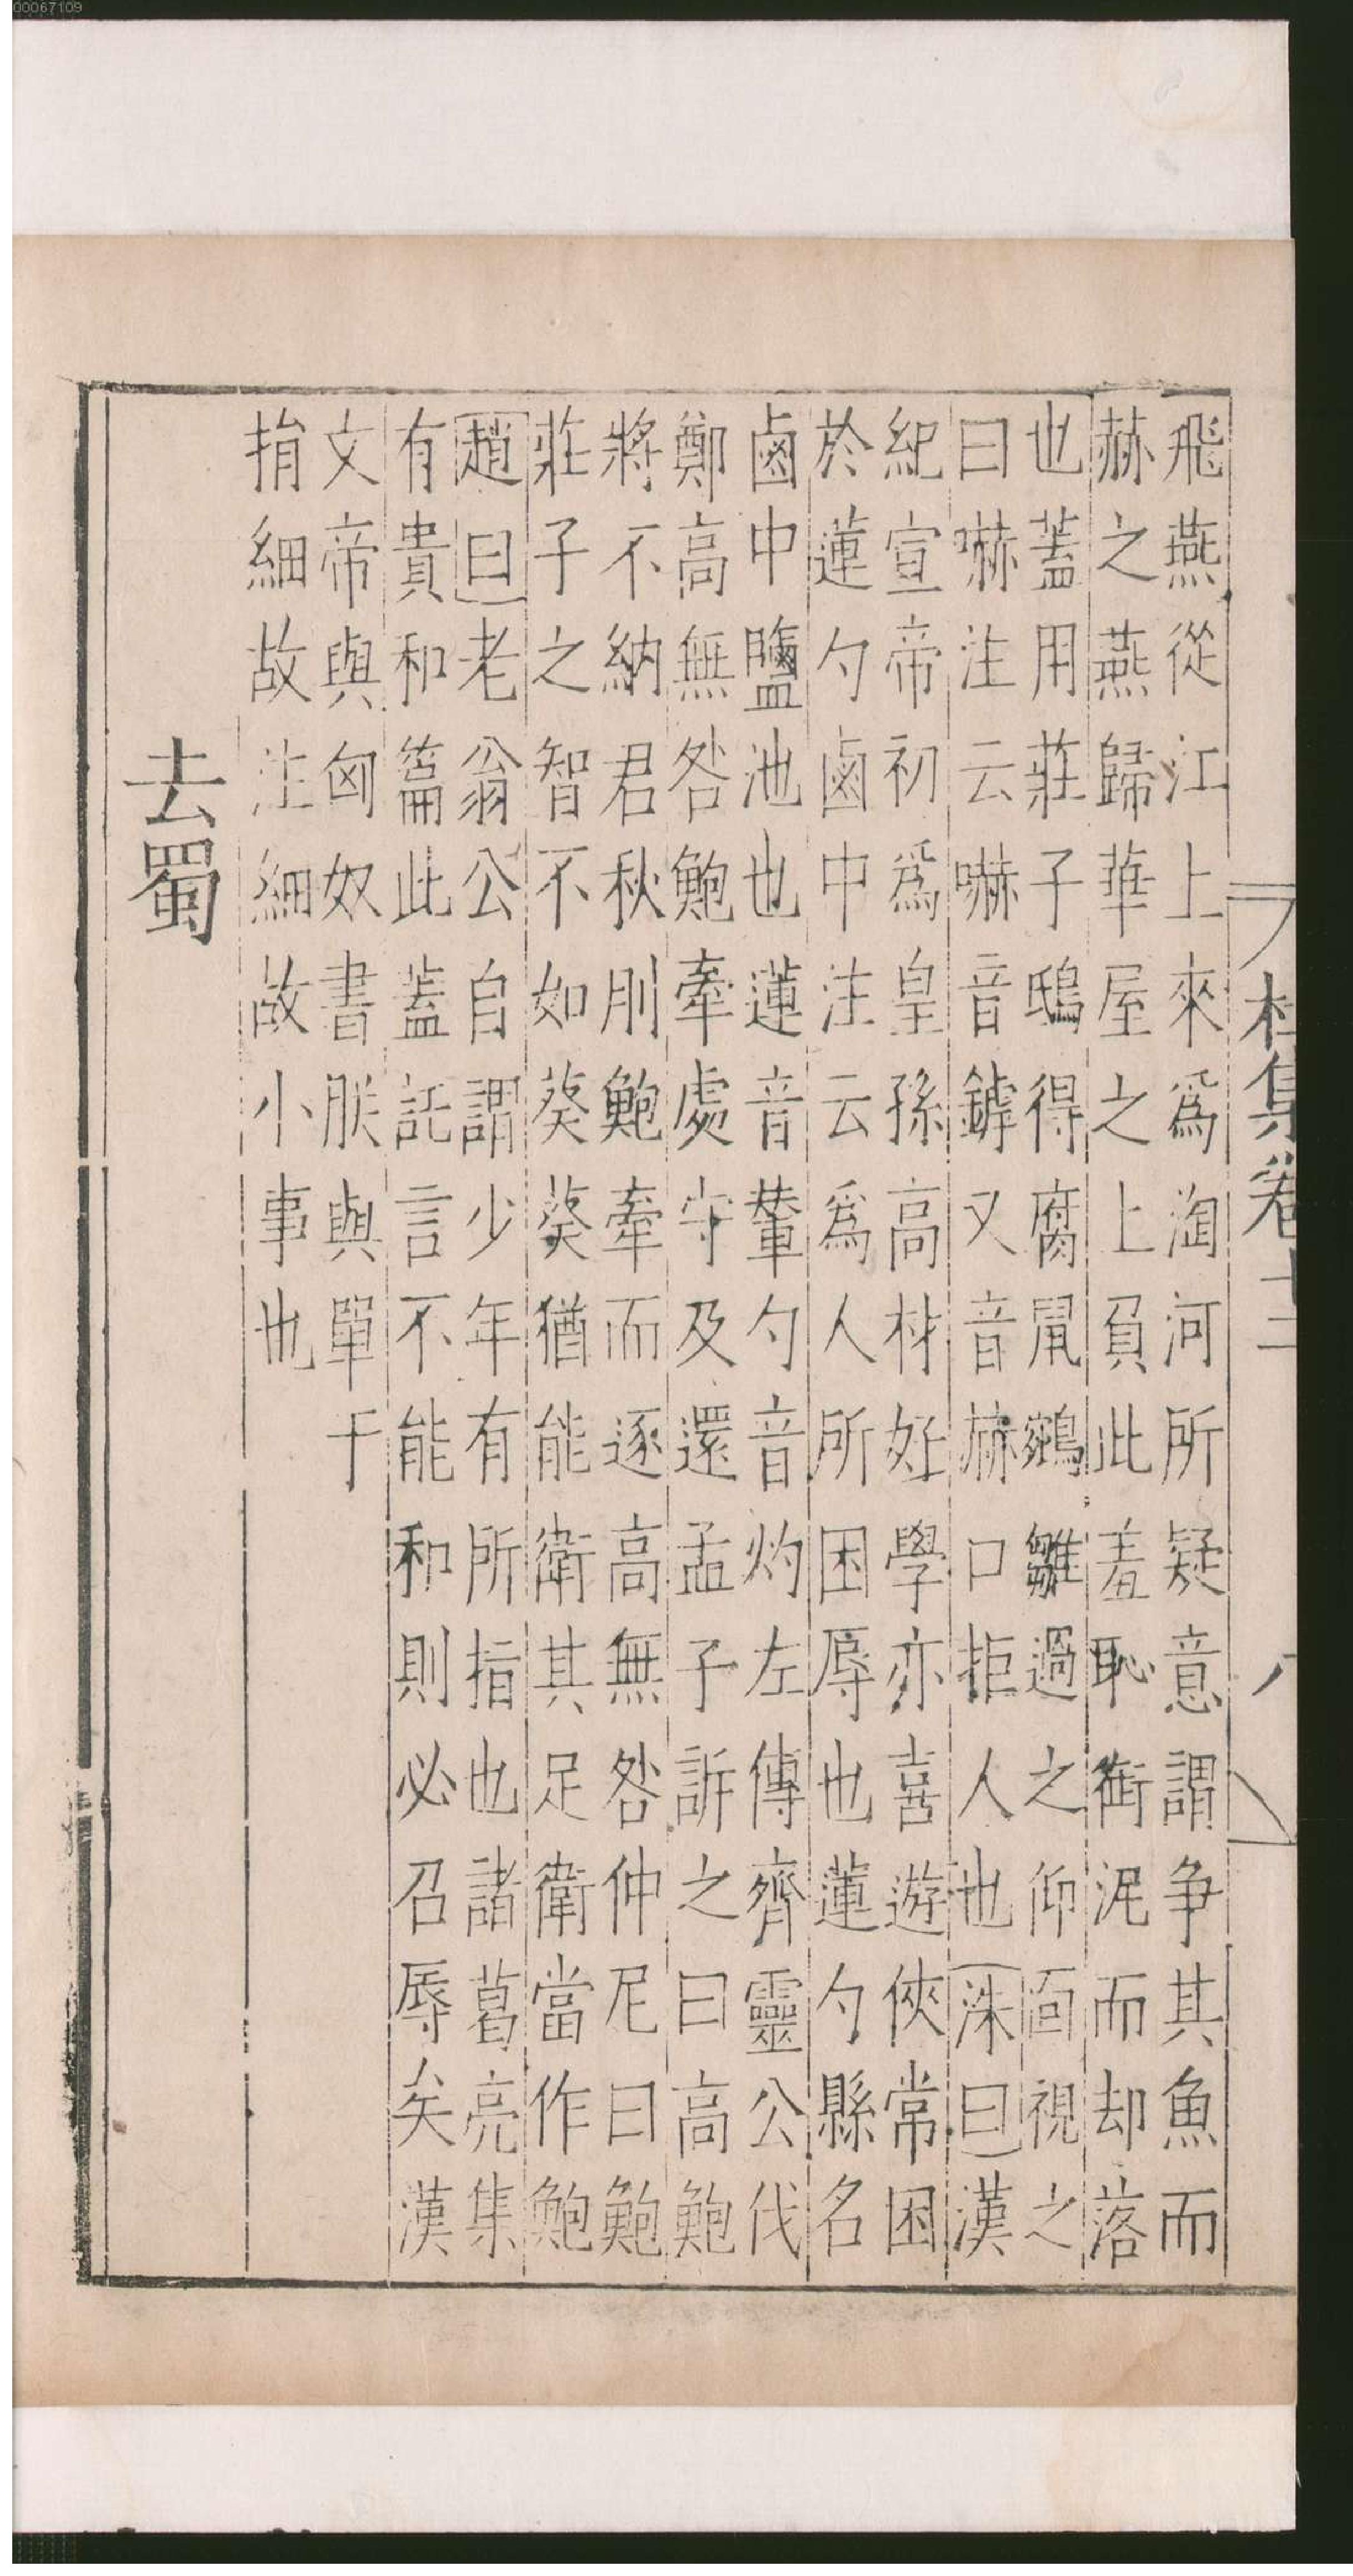 00067109
杜集卷十三 八
飛燕從江上來爲淘河所疑意謂争其魚而
赫之燕歸華屋之上負此羞恥銜泥而却落
也蓋用莊子鴟得腐鼠鵷雛過之仰而視之
曰嚇注云嚇音罅又音赫口拒人也洙曰漢
紀宣帝初爲皇孫高材好學亦喜遊俠常困
於蓮勺鹵中注云爲人所困辱也蓮勺縣名
鹵中鹽池也蓮音輦勺音灼左傳齊靈公伐
鄭高無咎鮑牽處守及還孟子訴之曰高鮑
將不納君秋刖鮑牽而逐高無咎仲尼曰鮑
莊子之智不如葵葵猶能衛其足衛當作鮑
趙曰老翁公自謂少年有所指也諸葛亮集
有貴和篇此蓋託言不能和則必召辱矣漢
文帝與匈奴書朕與單于
捐細故注細故小事也
去蜀